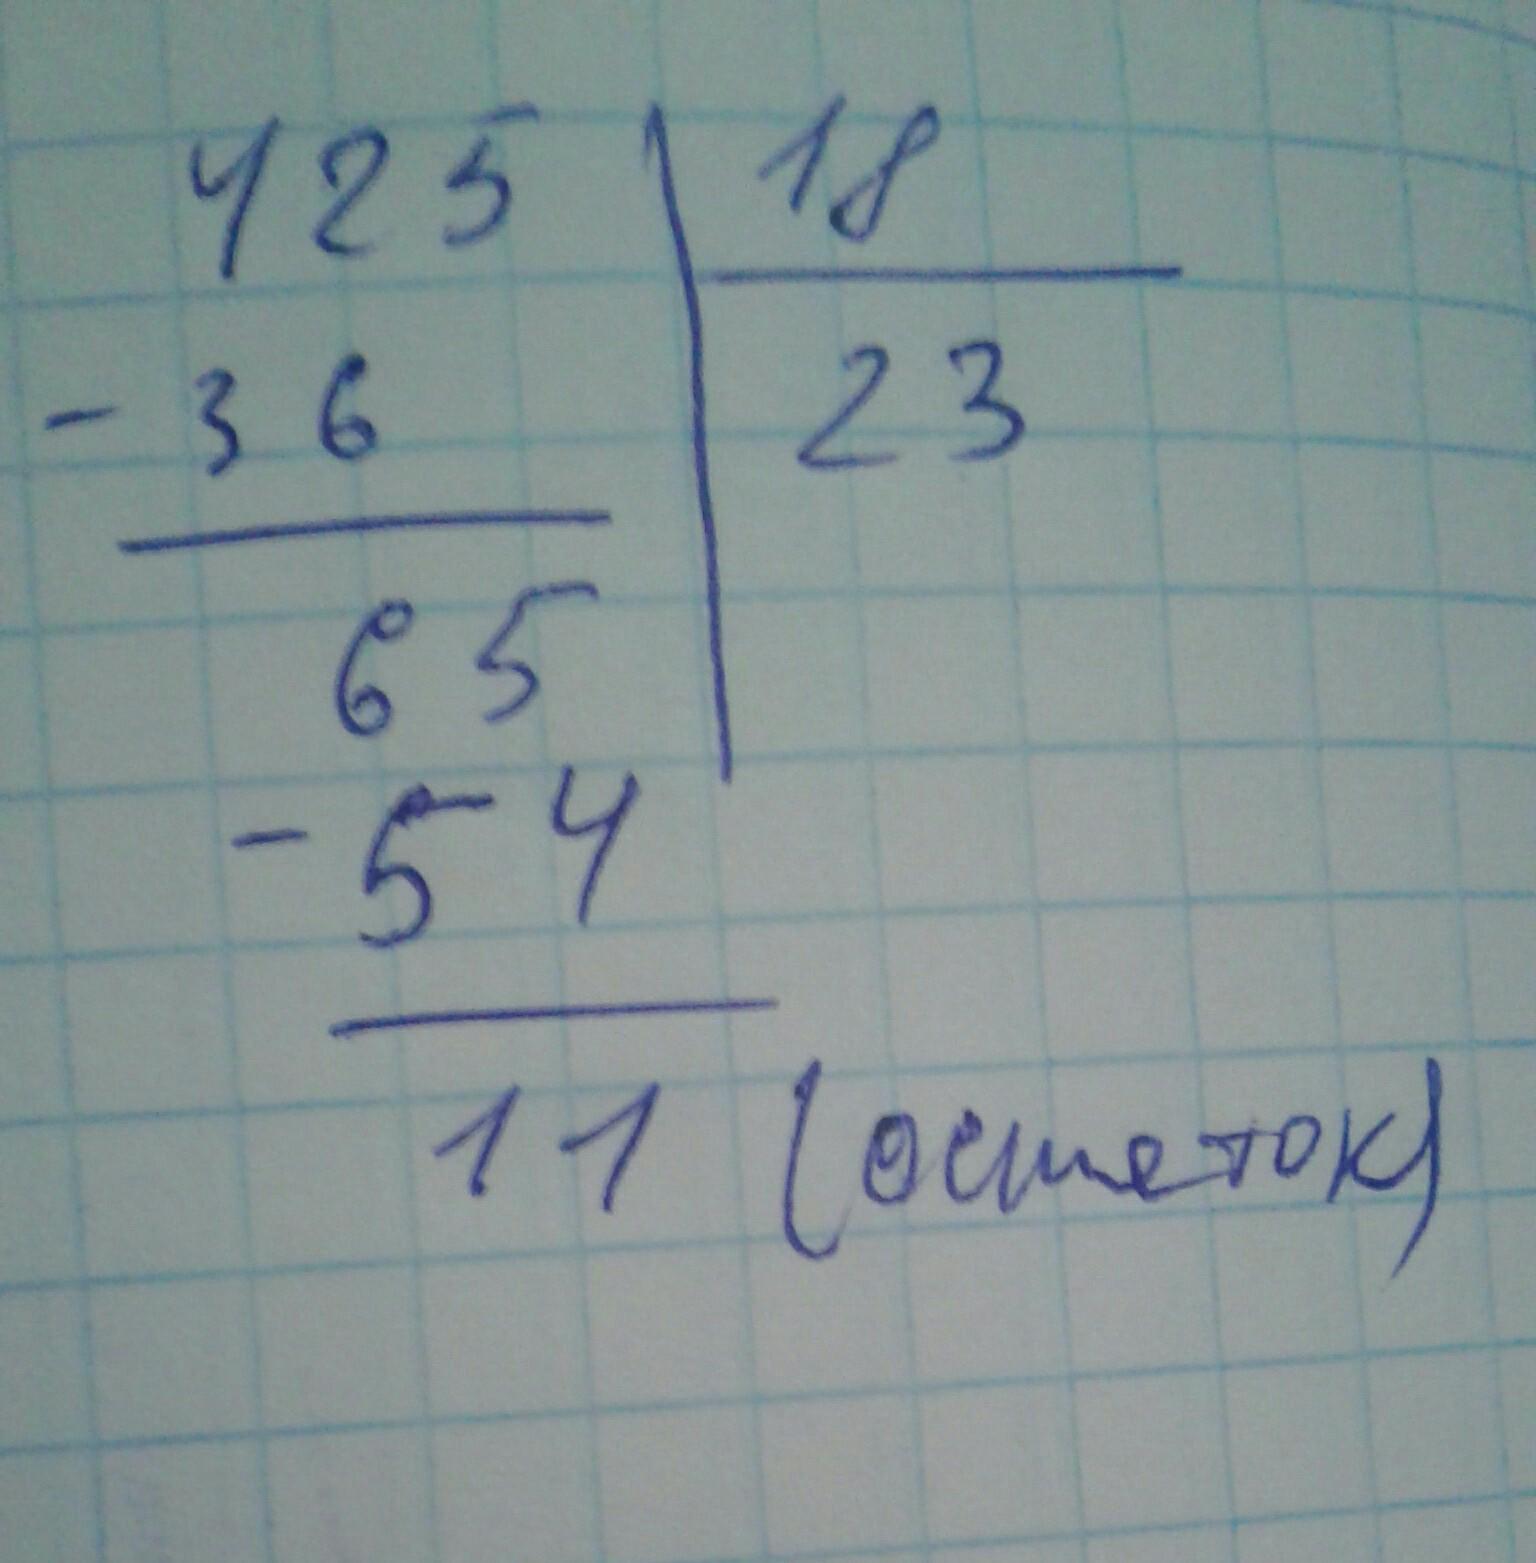 425 18
- 36 23
65
- 54
11 (остаток)